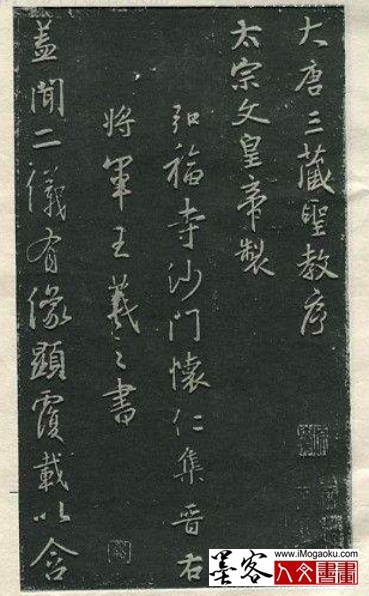 大唐三藏聖教序
太宗文皇帝製
弘福寺沙門懷仁集晉右
將軍王羲之書
蓋聞二儀有像顯覆載以含
墨客
www.iMogaoku.com
人文書畫